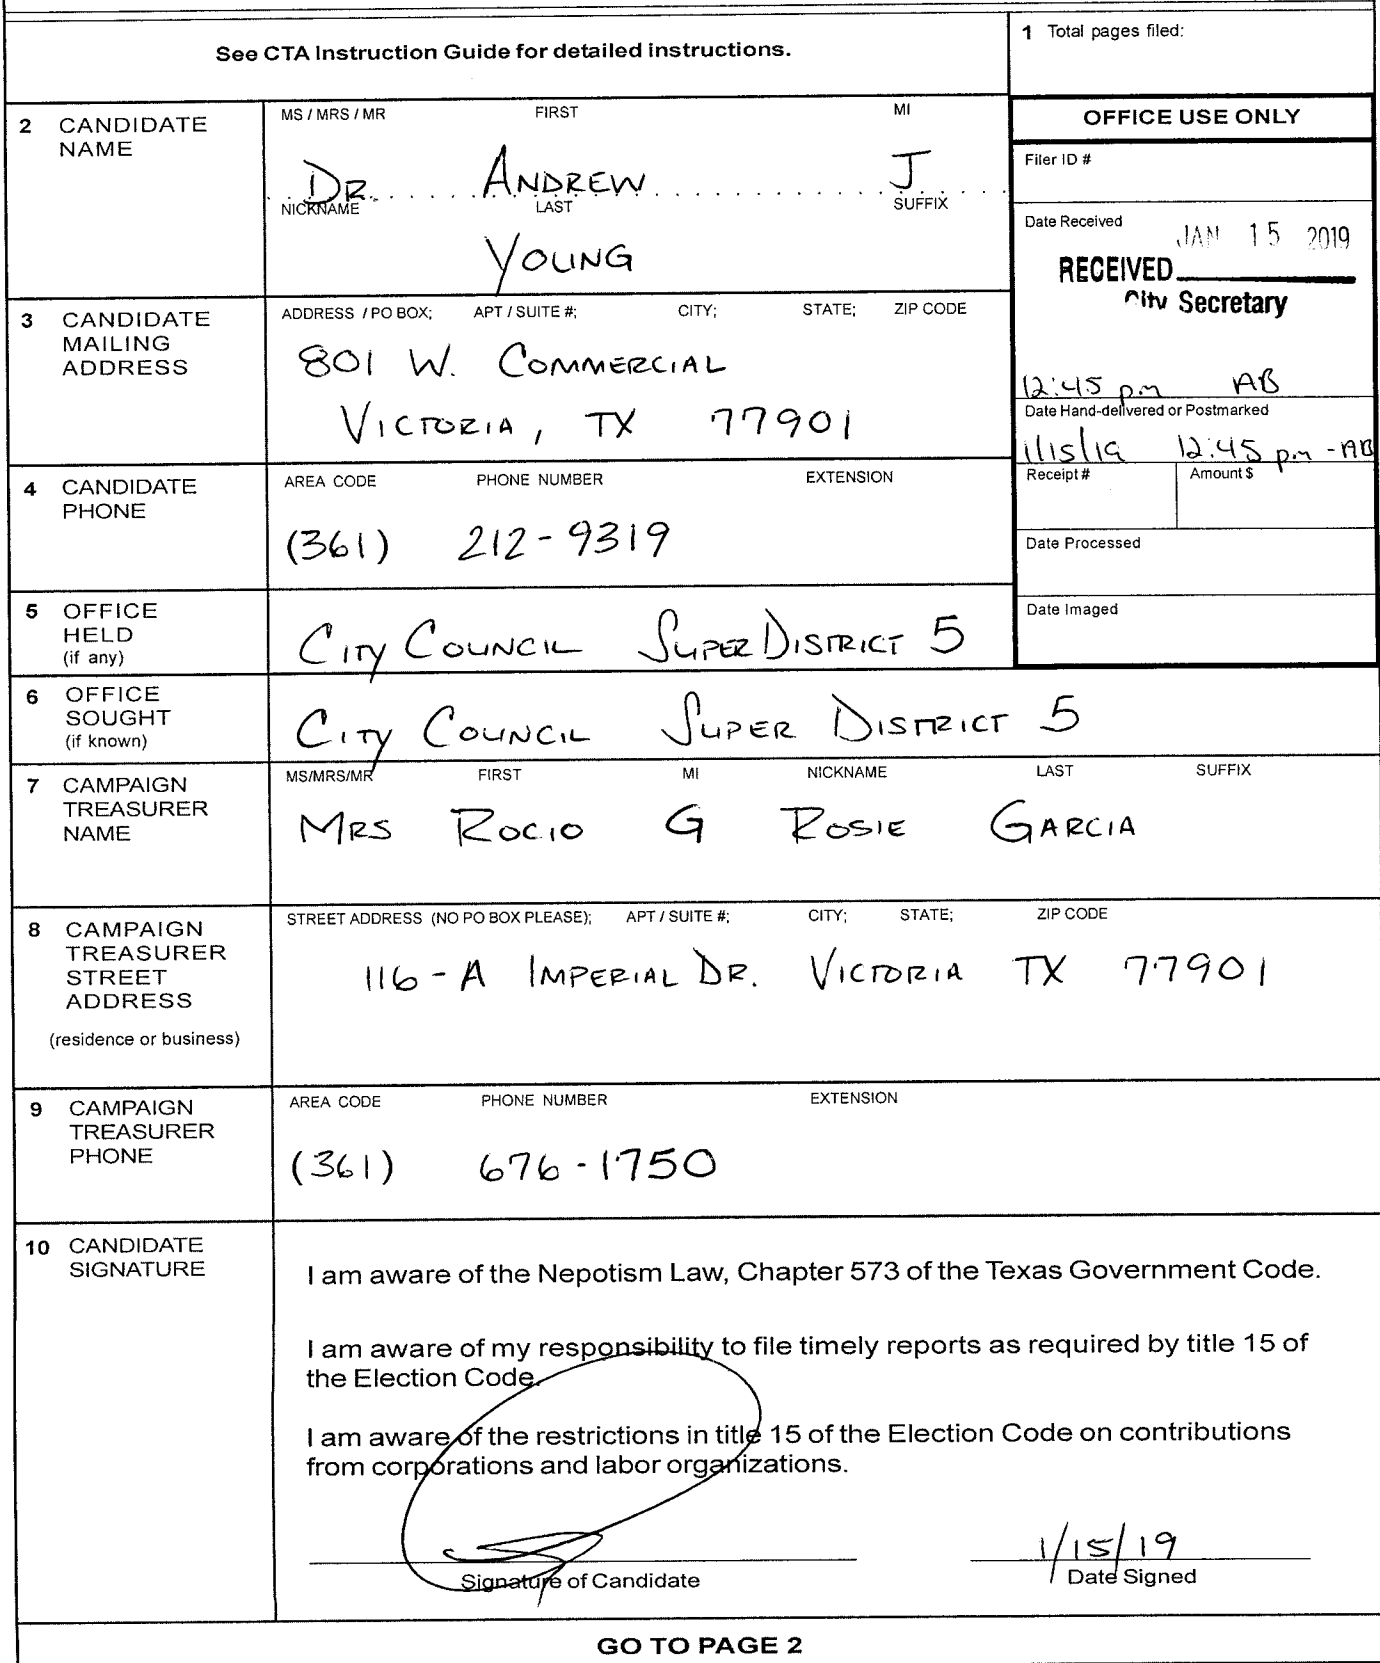 See CTA Instruction Guide for detailed instructions.
1 Total pages filed:
2 CANDIDATE NAME
MS / MRS / MR FIRST MI
DR. ANDREW J
NICKNAME LAST SUFFIX
YOUNG
OFFICE USE ONLY
Filer ID #
Date Received
JAN 15 2019
RECEIVED
City Secretary
12:45 pm AB
Date Hand-delivered or Postmarked
1/15/19 12:45 pm - AB
Receipt # Amount $
Date Processed
Date Imaged
3 CANDIDATE MAILING ADDRESS
ADDRESS / PO BOX; APT / SUITE #; CITY; STATE; ZIP CODE
801 W. COMMERCIAL
VICTORIA, TX 77901
4 CANDIDATE PHONE
AREA CODE PHONE NUMBER EXTENSION
(361) 212-9319
5 OFFICE HELD (if any)
CITY COUNCIL SUPER DISTRICT 5
6 OFFICE SOUGHT (if known)
CITY COUNCIL SUPER DISTRICT 5
7 CAMPAIGN TREASURER NAME
MS/MRS/MR FIRST MI NICKNAME LAST SUFFIX
MRS ROCIO G ROSIE GARCIA
8 CAMPAIGN TREASURER STREET ADDRESS
(residence or business)
STREET ADDRESS (NO PO BOX PLEASE); APT / SUITE #; CITY; STATE; ZIP CODE
116-A IMPERIAL DR. VICTORIA TX 77901
9 CAMPAIGN TREASURER PHONE
AREA CODE PHONE NUMBER EXTENSION
(361) 676-1750
10 CANDIDATE SIGNATURE
I am aware of the Nepotism Law, Chapter 573 of the Texas Government Code.
I am aware of my responsibility to file timely reports as required by title 15 of
the Election Code.
I am aware of the restrictions in title 15 of the Election Code on contributions
from corporations and labor organizations.
1/15/19
Signature of Candidate Date Signed
GO TO PAGE 2